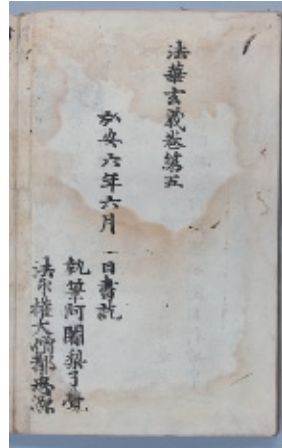 法華玄義巻第五
弘安六年六月一日書訖
執筆阿闍梨了
法印権大僧都